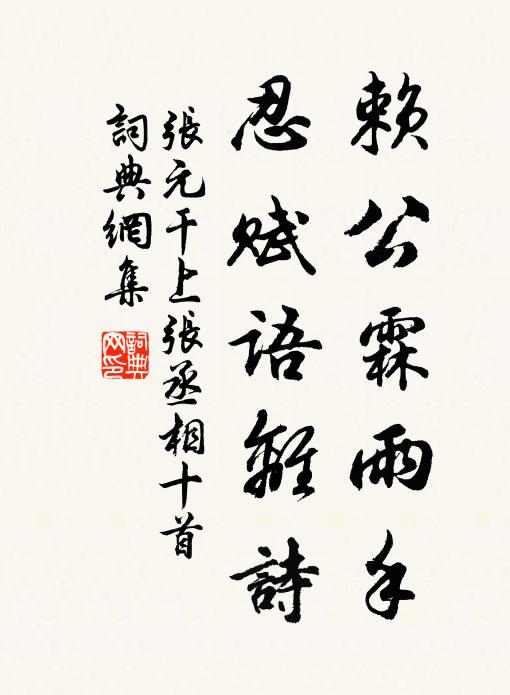 賴公霖雨手
忍賦語離詩
張元干上張丞相十首
詞典網集
詞典网印